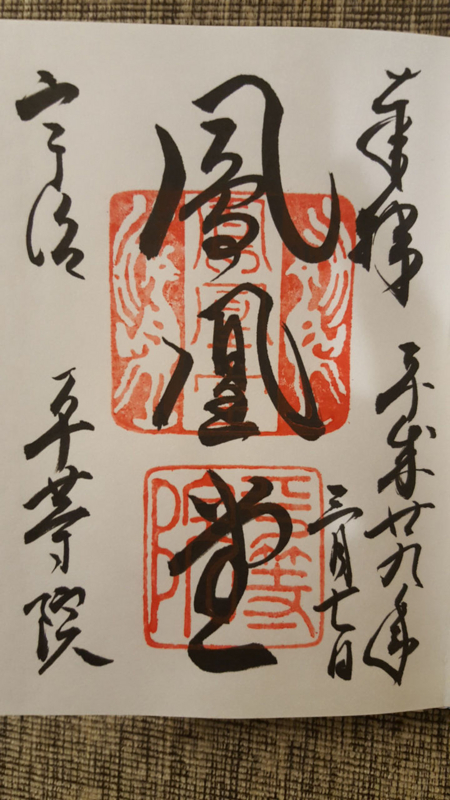 奉拝 平成廿九年
三月七日
鳳凰堂
宇治 平等院
鳳凰堂
平等院